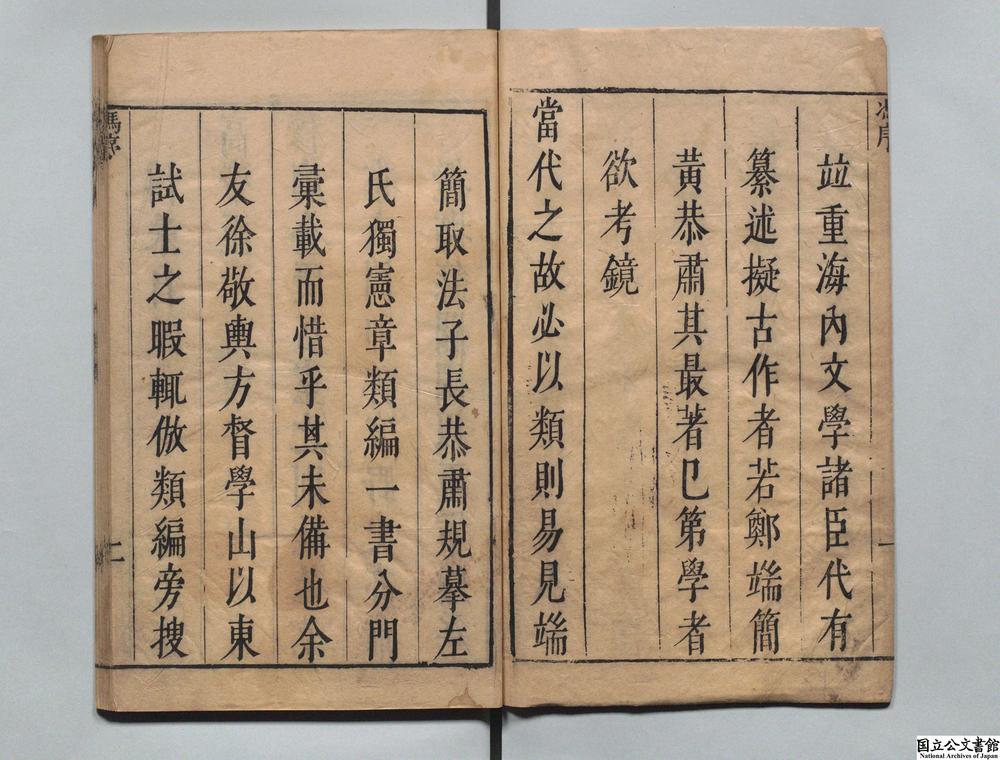 馮序
並重海內文學諸臣代有
纂述擬古作者若鄭端簡
黃恭肅其最著已第學者
欲考鏡
當代之故必以類則易見端
一
簡取法子長恭肅規摹左
氏獨憲章類編一書分門
彙載而惜乎其未備也余
友徐敬輿方督學山以東
試士之暇輒倣類編旁搜
馮序
二
国立公文書館
National Archives of Japan